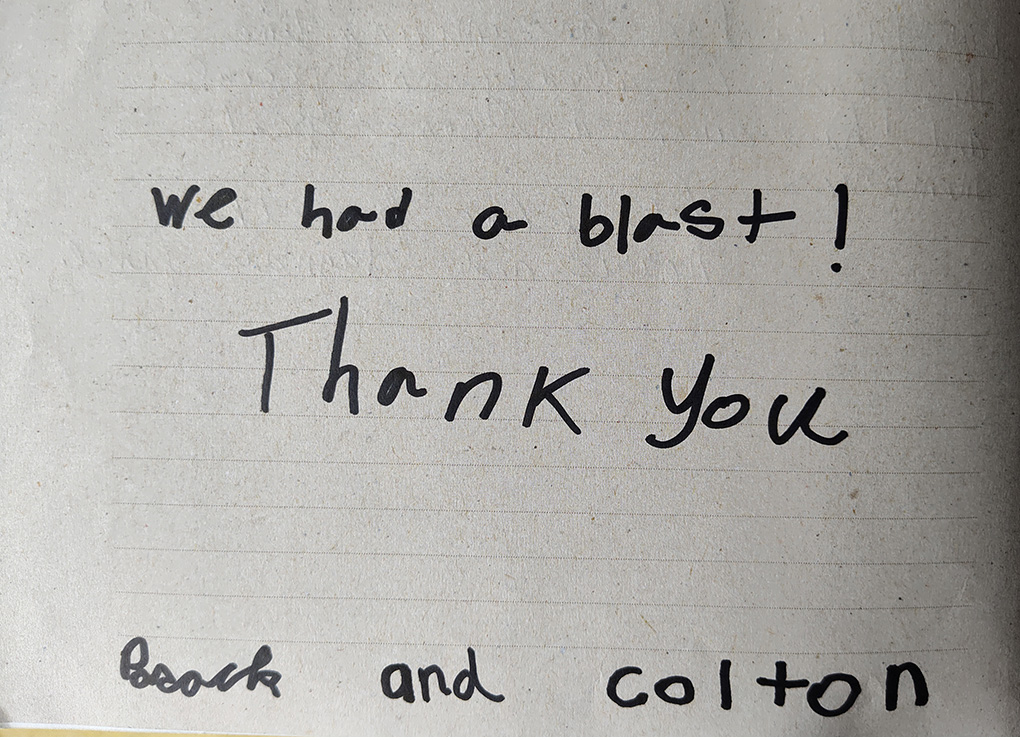 we had a blast!
Thank you
Brock and colton